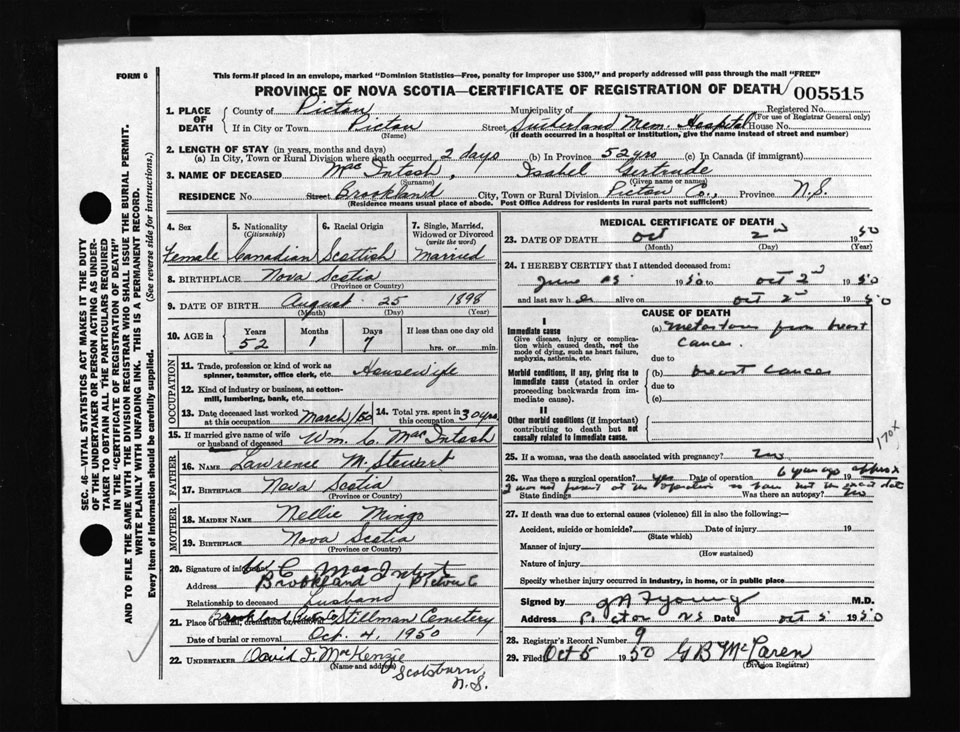 FORM 6
This form if placed in an envelope, marked "Dominion Statistics—Free, penalty for improper use $300," and properly addressed will pass through the mail "FREE"
PROVINCE OF NOVA SCOTIA—CERTIFICATE OF REGISTRATION OF DEATH 005515
1. PLACE OF DEATH
County of Pictou Municipality of Registered No.
(For use of Registrar General only)
If in City or Town Pictou Street Sutherland Mem. Hospital House No.
(Name) (If death occurred in a hospital or institution, give the name instead of street and number)
2. LENGTH OF STAY (in years, months and days)
(a) In City, Town or Rural Division where death occurred 2 days (b) In Province 52 yrs (c) In Canada (if immigrant)
3. NAME OF DECEASED Mac Intosh, Isabel Gertrude
(Surname) (Given name or names)
RESIDENCE No. Street Brookland City, Town or Rural Division Pictou Co., Province N.S.
(Residence means usual place of abode. Post Office Address for residents in rural parts not sufficient)
4. Sex Female
5. Nationality (Citizenship) Canadian
6. Racial Origin Scottish
7. Single, Married, Widowed or Divorced (write the word) Married
8. BIRTHPLACE Nova Scotia
(Province or Country)
9. DATE OF BIRTH August 25 1898
(Month) (Day) (Year)
10. AGE in Years Months Days If less than one day old
52 1 7 hrs. or min.
OCCUPATION
11. Trade, profession or kind of work as spinner, teamster, office clerk, etc. Housewife
12. Kind of industry or business, as cotton-mill, lumbering, bank, etc.
13. Date deceased last worked at this occupation March/50
14. Total yrs. spent in this occupation 30 yrs
15. If married give name of wife or husband of deceased Wm. C. Mac Intosh
FATHER
16. NAME Lawrence M. Stewart
17. BIRTHPLACE Nova Scotia
(Province or Country)
MOTHER
18. MAIDEN NAME Nellie Mingo
19. BIRTHPLACE Nova Scotia
(Province or Country)
20. Signature of informant W C Mac Intosh
Address Brookland Pictou C
Relationship to deceased husband
21. Place of burial, cremation or removal Stillman Cemetery
Date of burial or removal Oct. 4, 1950
22. UNDERTAKER David F. MacKenzie
(Name and address)
Scotsburn, N.S.
MEDICAL CERTIFICATE OF DEATH
23. DATE OF DEATH Oct 2nd 1950
(Month) (Day) (Year)
24. I HEREBY CERTIFY that I attended deceased from:
June 1950 to Oct 2nd 1950
and last saw her alive on Oct 2nd 1950
CAUSE OF DEATH
I
Immediate cause
Give disease, injury or complication which caused death, not the mode of dying, such as heart failure, asphyxia, asthenia, etc.
(a) Metastases from breast cancer.
due to
Morbid conditions, if any, giving rise to immediate cause (stated in order proceeding backwards from immediate cause).
(b) breast cancer
due to
(c)
II
Other morbid conditions (if important) contributing to death but not causally related to immediate cause.
170x
25. If a woman, was the death associated with pregnancy? no
26. Was there a surgical operation? yes Date of operation 6 years ago approx 19
I was not present at the operation so have not the exact date
State findings Was there an autopsy? no
27. If death was due to external causes (violence) fill in also the following:—
Accident, suicide or homicide? Date of injury 19
(State which)
Manner of injury
(How sustained)
Nature of injury
Specify whether injury occurred in industry, in home, or in public place
Signed by M.D.
Address Pictou NS Date Oct 5 1950
28. Registrar's Record Number 9
29. Filed Oct 5 1950 G B McLaren
(Division Registrar)
SEC. 46—VITAL STATISTICS ACT MAKES IT THE DUTY
OF THE UNDERTAKER OR PERSON ACTING AS UNDER-
TAKER TO OBTAIN ALL THE PARTICULARS REQUIRED
IN THE "CERTIFICATE OF REGISTRATION OF DEATH"
AND TO FILE THE SAME WITH THE DIVISION REGISTRAR WHO SHALL ISSUE THE BURIAL PERMIT.
WRITE PLAINLY WITH UNFADING INK. THIS IS A PERMANENT RECORD.
Every item of information should be carefully supplied. (See reverse side for instructions.)